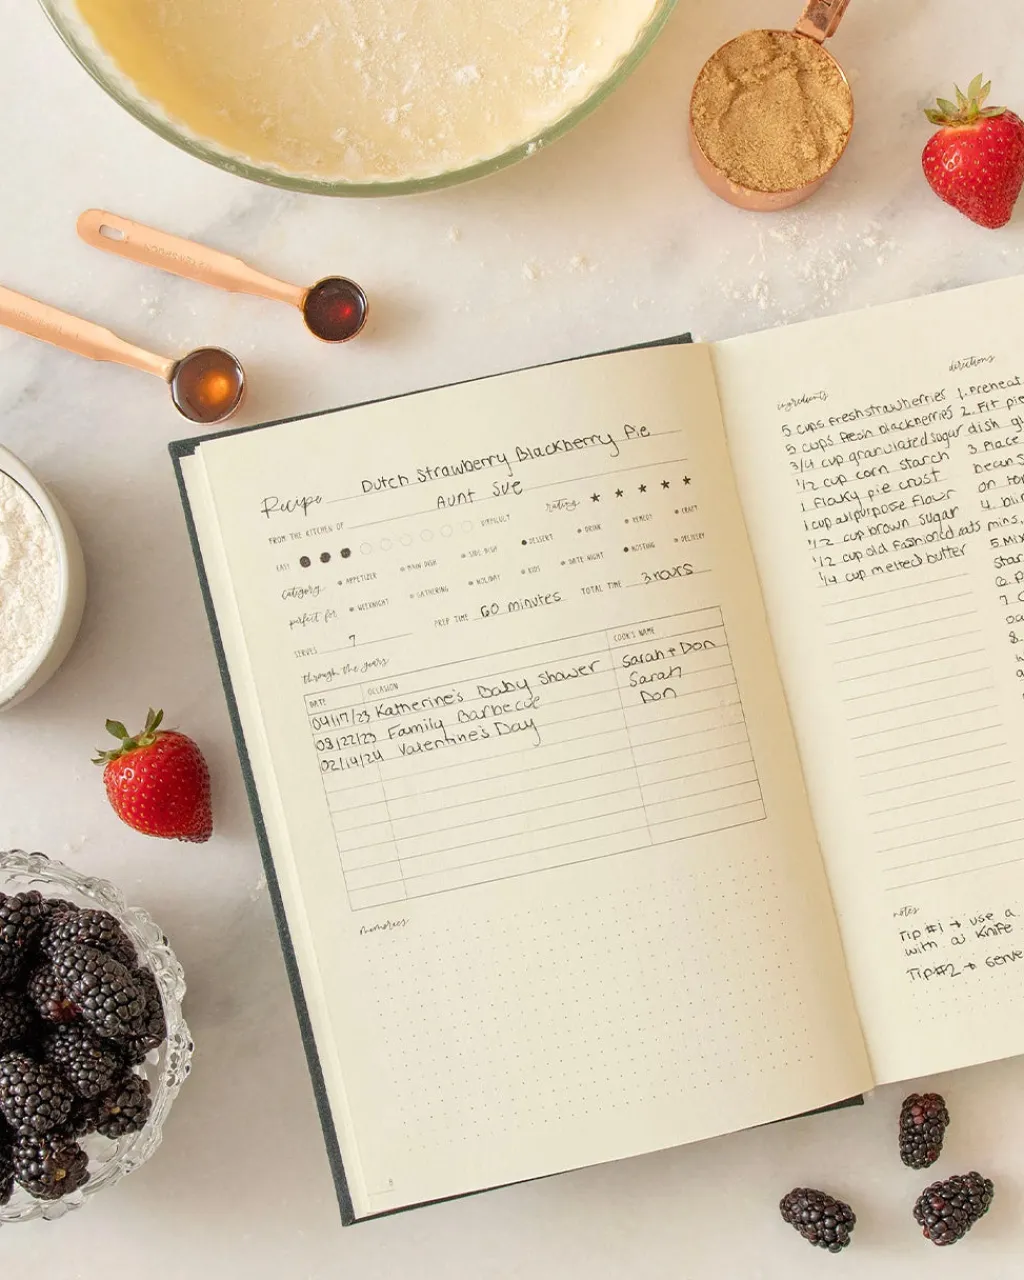 Recipe Dutch Strawberry Blackberry Pie
FROM THE KITCHEN OF Aunt Sue
EASY DIFFICULT rating: ★ ★ ★ ★ ★
category: APPETIZER MAIN DISH SIDE DISH DESSERT DRINK REMEDY CRAFT
perfect for: WEEKNIGHT GATHERING HOLIDAY KIDS DATE NIGHT HOSTING DELIVERY
SERVES 7 PREP TIME 60 minutes TOTAL TIME 3 hours
through the years
DATE OCCASION COOK'S NAME
04/17/23 Katherine's Baby Shower Sarah + Don
08/22/23 Family Barbecue Sarah
02/14/24 Valentine's Day Don
memories
8
ingredients
5 cups fresh strawberries
5 cups fresh blackberries
3/4 cup granulated sugar
1/2 cup corn starch
1 flaky pie crust
1 cup all purpose flour
1/2 cup brown sugar
1/2 cup old fashioned oats
1/4 cup melted butter
directions
1. Preheat
2. Fit pie
dish
3. Place
bean
on top
4.
mins,
5. Mix
star
6.
7.
8.
notes
Tip #1 → use a
with a knife
Tip #2 → serve